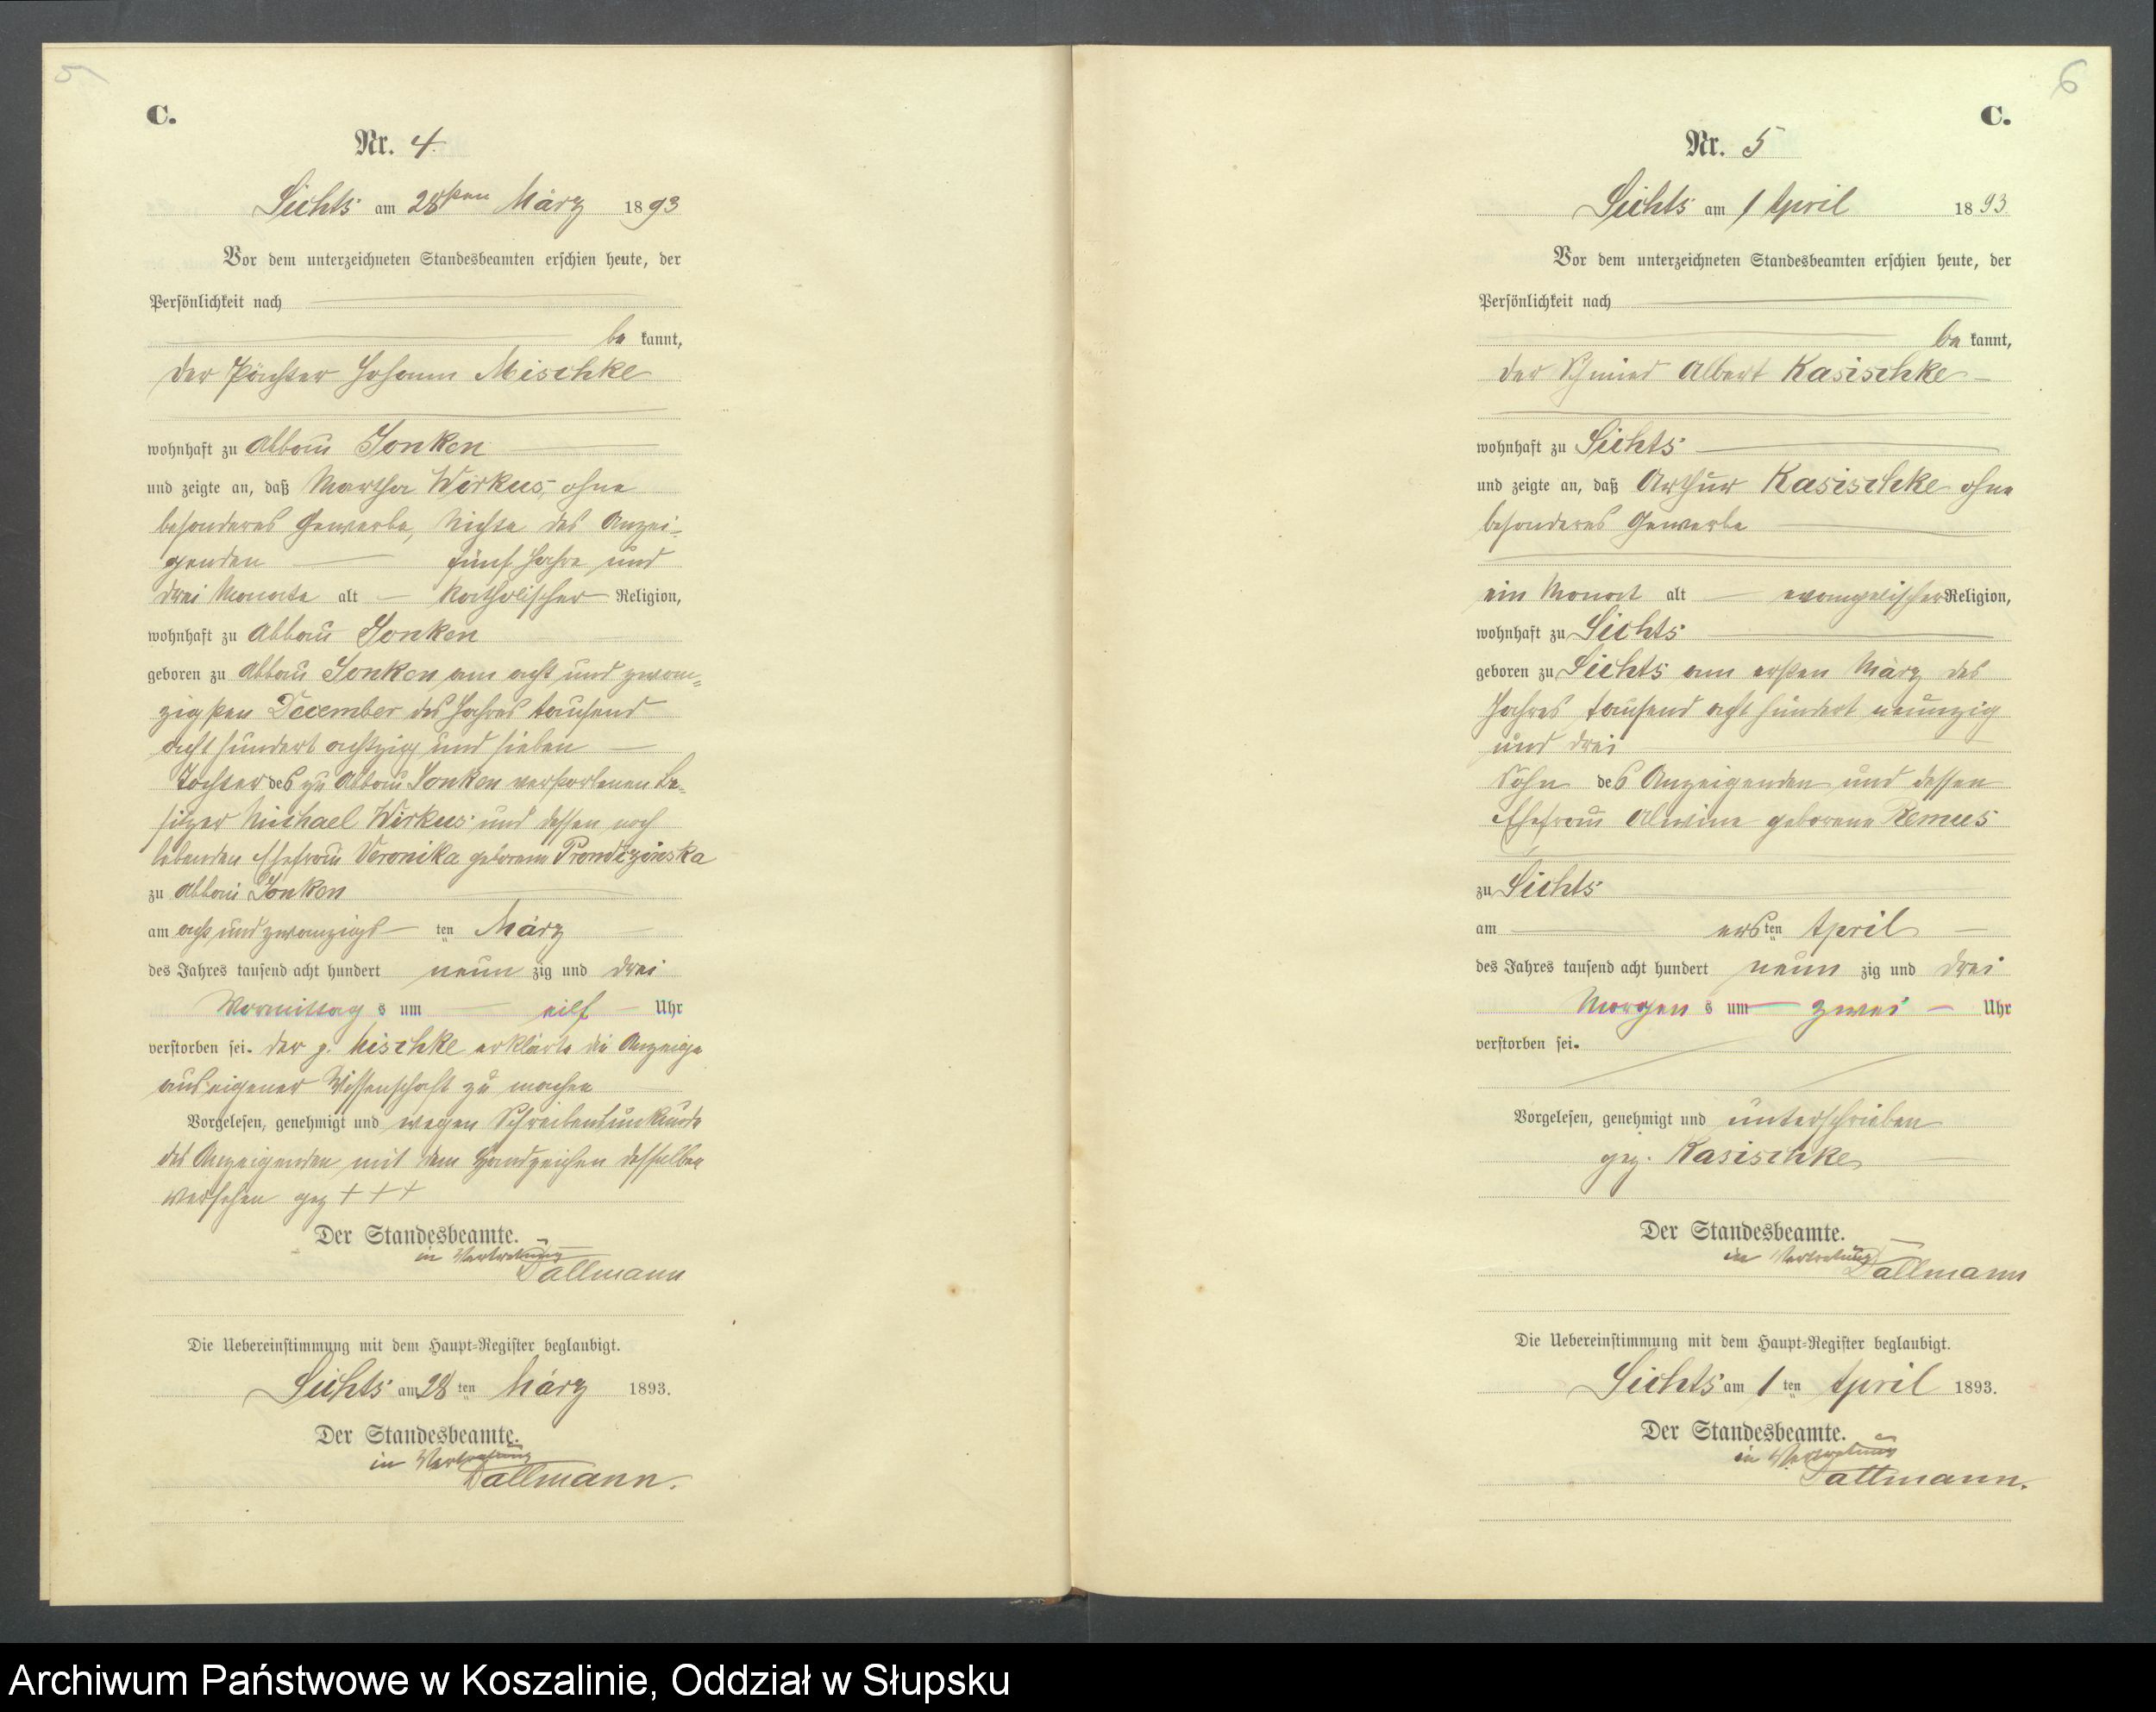 5
C.
Nr. 4.
Lichts am 28sten März 1893
Vor dem unterzeichneten Standesbeamten erschien heute, der
Persönlichkeit nach
be kannt,
der Pächter Johann Mischke
wohnhaft zu Abbau Jonken
und zeigte an, daß Martha Wirkus, ohne
besonderes Gewerbe, Nichte des Anzei-
genden fünf Jahre und
drei Monate alt katholischer Religion,
wohnhaft zu Abbau Jonken
geboren zu Abbau Jonken am acht und zwan-
zigsten December des Jahres tausend
acht hundert achtzig und sieben
Tochter des zu Abbau Jonken verstorbenen Be-
sitzer Michael Wirkus und dessen noch
lebenden Ehefrau Veronika geborene Prondzinska
zu Abbau Jonken
am acht und zwanzigs ten März
des Jahres tausend acht hundert neun zig und drei
Vormittag s um eilf Uhr
verstorben sei. der p. Mischke erklärte die Anzeige
aus eigener Wissenschaft zu machen
Vorgelesen, genehmigt und wegen Schreibensunkunde
des Anzeigenden mit dem Handzeichen desselben
versehen gez +++
Der Standesbeamte.
in Vertretung
Dallmann
Die Uebereinstimmung mit dem Haupt-Register beglaubigt.
Lichts am 28 ten März 1893.
Der Standesbeamte.
in Vertretung
Dallmann.
6
C.
Nr. 5
Lichts am 1 April 1893.
Vor dem unterzeichneten Standesbeamten erschien heute, der
Persönlichkeit nach
be kannt,
der Schmied Albert Kasischke
wohnhaft zu Lichts
und zeigte an, daß Arthur Kasischke ohne
besonderes Gewerbe
ein Monat alt evangelischer Religion,
wohnhaft zu Lichts
geboren zu Lichts am ersten März des
Jahres tausend acht hundert neunzig
und drei
Sohn des Anzeigenden und dessen
Ehefrau Alwine geborene Remus
zu Lichts
am ers ten April
des Jahres tausend acht hundert neun zig und drei
Morgen s um zwei Uhr
verstorben sei.
Vorgelesen, genehmigt und unterschrieben
gez. Kasischke
Der Standesbeamte.
in Vertretung
Dallmann
Die Uebereinstimmung mit dem Haupt-Register beglaubigt.
Lichts am 1 ten April 1893.
Der Standesbeamte.
in Vertretung
Dallmann.
Archiwum Państwowe w Koszalinie, Oddział w Słupsku